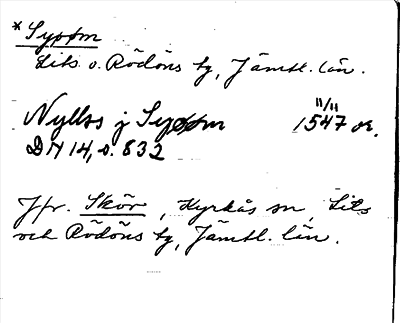 * Syøøm
Lits o. Rödöns tg, Jämtl. län.
Nyllss j Syøøm 11/11 1547 or.
DN 14, s. 832
Jfr. Skör, Kyrkås sn, Lits
och Rödöns tg, Jämtl. län.